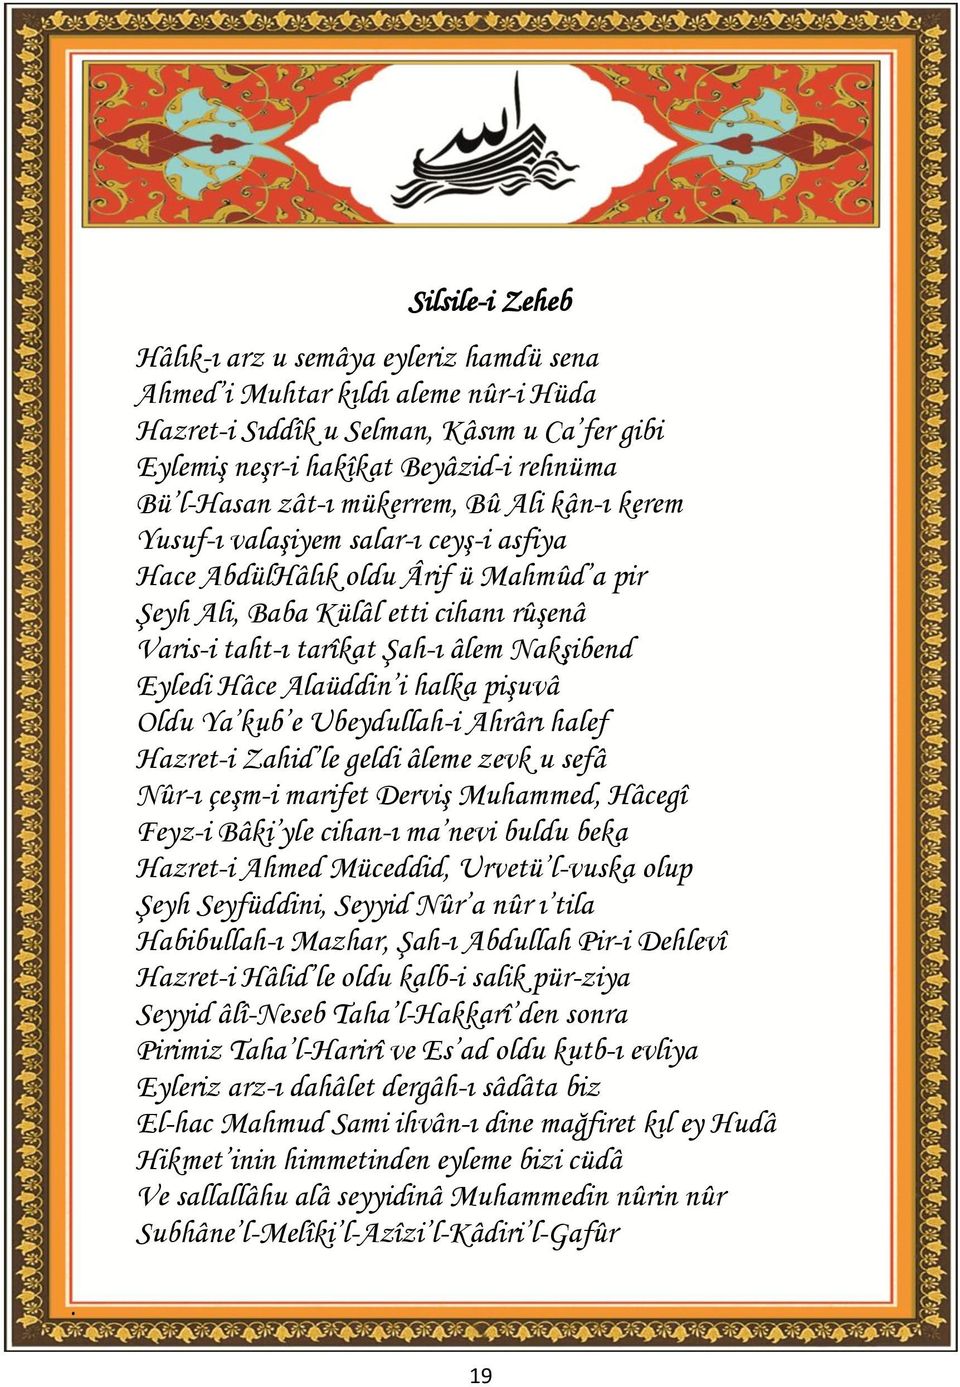 الله
Silsile-i Zeheb
Hâlık-ı arz u semâya eyleriz hamdü sena
Ahmed’i Muhtar kıldı aleme nûr-i Hüda
Hazret-i Sıddîk u Selman, Kâsım u Ca’fer gibi
Eylemiş neşr-i hakîkat Beyâzid-i rehnüma
Bü’l-Hasan zât-ı mükerrem, Bû Ali kân-ı kerem
Yusuf-ı valaşiyem salar-ı ceyş-i asfiya
Hace AbdülHâlık oldu Ârif ü Mahmûd’a pir
Şeyh Ali, Baba Külâl etti cihanı rûşenâ
Varis-i taht-ı tarîkat Şah-ı âlem Nakşibend
Eyledi Hâce Alaüddin’i halka pişuvâ
Oldu Ya’kub’e Ubeydullah-i Ahrârı halef
Hazret-i Zahid’le geldi âleme zevk u sefâ
Nûr-ı çeşm-i marifet Derviş Muhammed, Hâcegî
Feyz-i Bâki’yle cihan-ı ma’nevi buldu beka
Hazret-i Ahmed Müceddid, Urvetü’l-vuska olup
Şeyh Seyfüddini, Seyyid Nûr’a nûr ı’tila
Habibullah-ı Mazhar, Şah-ı Abdullah Pir-i Dehlevî
Hazret-i Hâlid’le oldu kalb-i salik pür-ziya
Seyyid âlî-Neseb Taha’l-Hakkarî’den sonra
Pirimiz Taha’l-Harirî ve Es’ad oldu kutb-ı evliya
Eyleriz arz-ı dahâlet dergâh-ı sâdâta biz
El-hac Mahmud Sami ihvân-ı dine mağfiret kıl ey Hudâ
Hikmet’inin himmetinden eyleme bizi cüdâ
Ve sallallâhu alâ seyyidinâ Muhammedin nûrin nûr
Subhâne’l-Melîki’l-Azîzi’l-Kâdiri’l-Gafûr
.
19